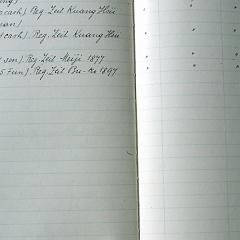 cash). Reg. Zeit Kuang Hsü
cash). Reg. Zeit Kuang Hsü
sen). Reg. Zeit Meiji 1877
5 Fun). Reg. Zeit 1897